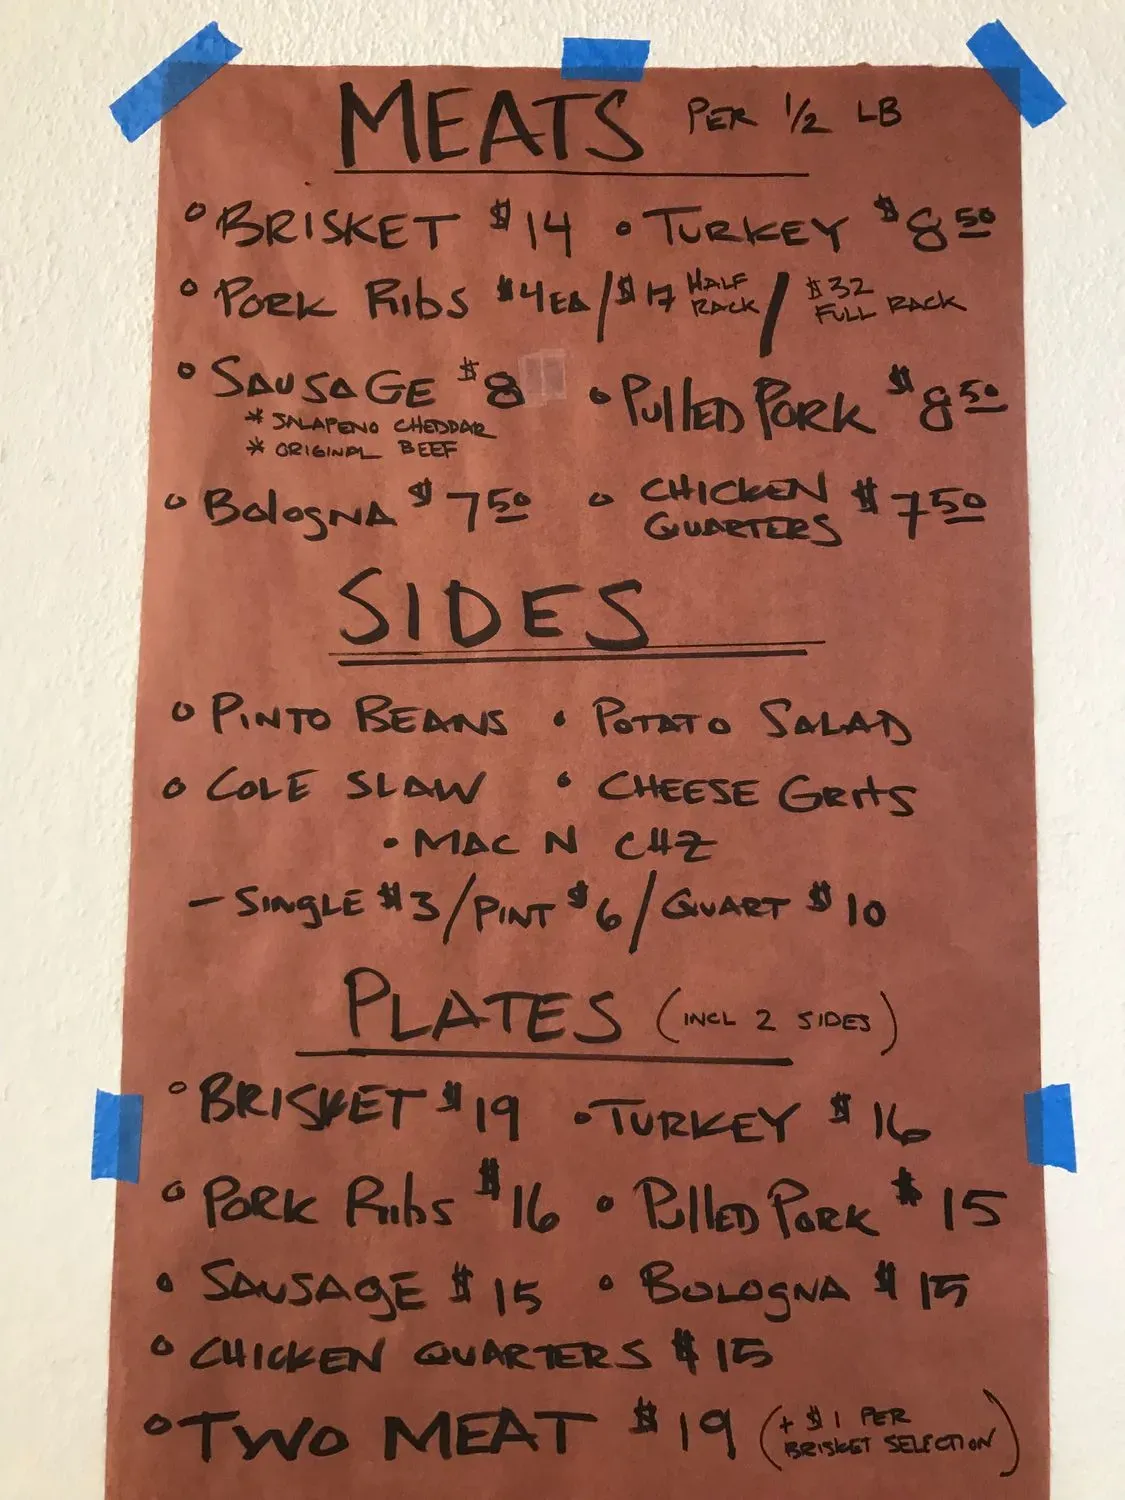 MEATS PER 1/2 LB
BRISKET $14 • TURKEY $8.50
PORK RIBS $4EA / $17 HALF RACK / $32 FULL RACK
SAUSAGE $8 • PULLED PORK $8.50
* JALAPENO CHEDDAR
* ORIGINAL BEEF
BOLOGNA $7.50 • CHICKEN QUARTERS $7.50
SIDES
• PINTO BEANS • POTATO SALAD
• COLE SLAW • CHEESE GRITS
• MAC N CHZ
— SINGLE $3 / PINT $6 / QUART $10
PLATES (INCL 2 SIDES)
• BRISKET $19 • TURKEY $16
• PORK RIBS $16 • PULLED PORK $15
• SAUSAGE $15 • BOLOGNA $15
• CHICKEN QUARTERS $15
• TWO MEAT $19 (+ $1 PER BRISKET SELECTION)